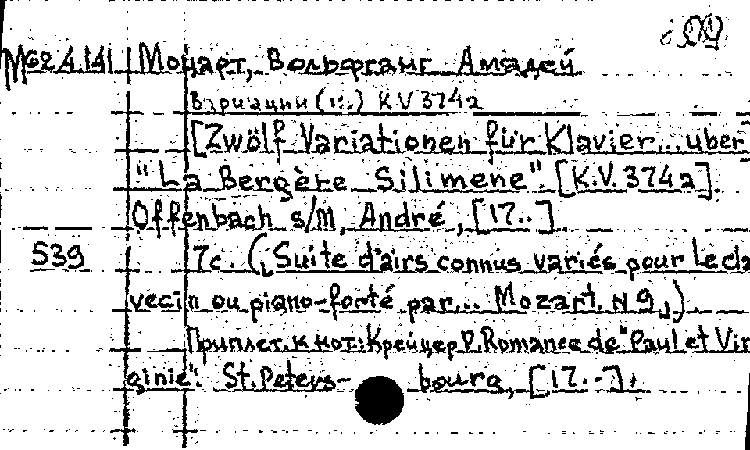 109
М62.4.141 Моцарт, Вольфганг Амадей
Вариации (12.) KV 374a
[Zwölf Variationen für Klavier... uber
"La Bergère Silimene". [K.V. 374a].
Offenbach s/M, André, [17..]
539 7c. („Suite d'airs connus variés pour le cla
vecin ou piano-forté par... Mozart. N 9„)
Приплет. к нот.: Крейцер Р. Romance de "Paul et Vir
ginie". St. Peters- bourg, [17.-].